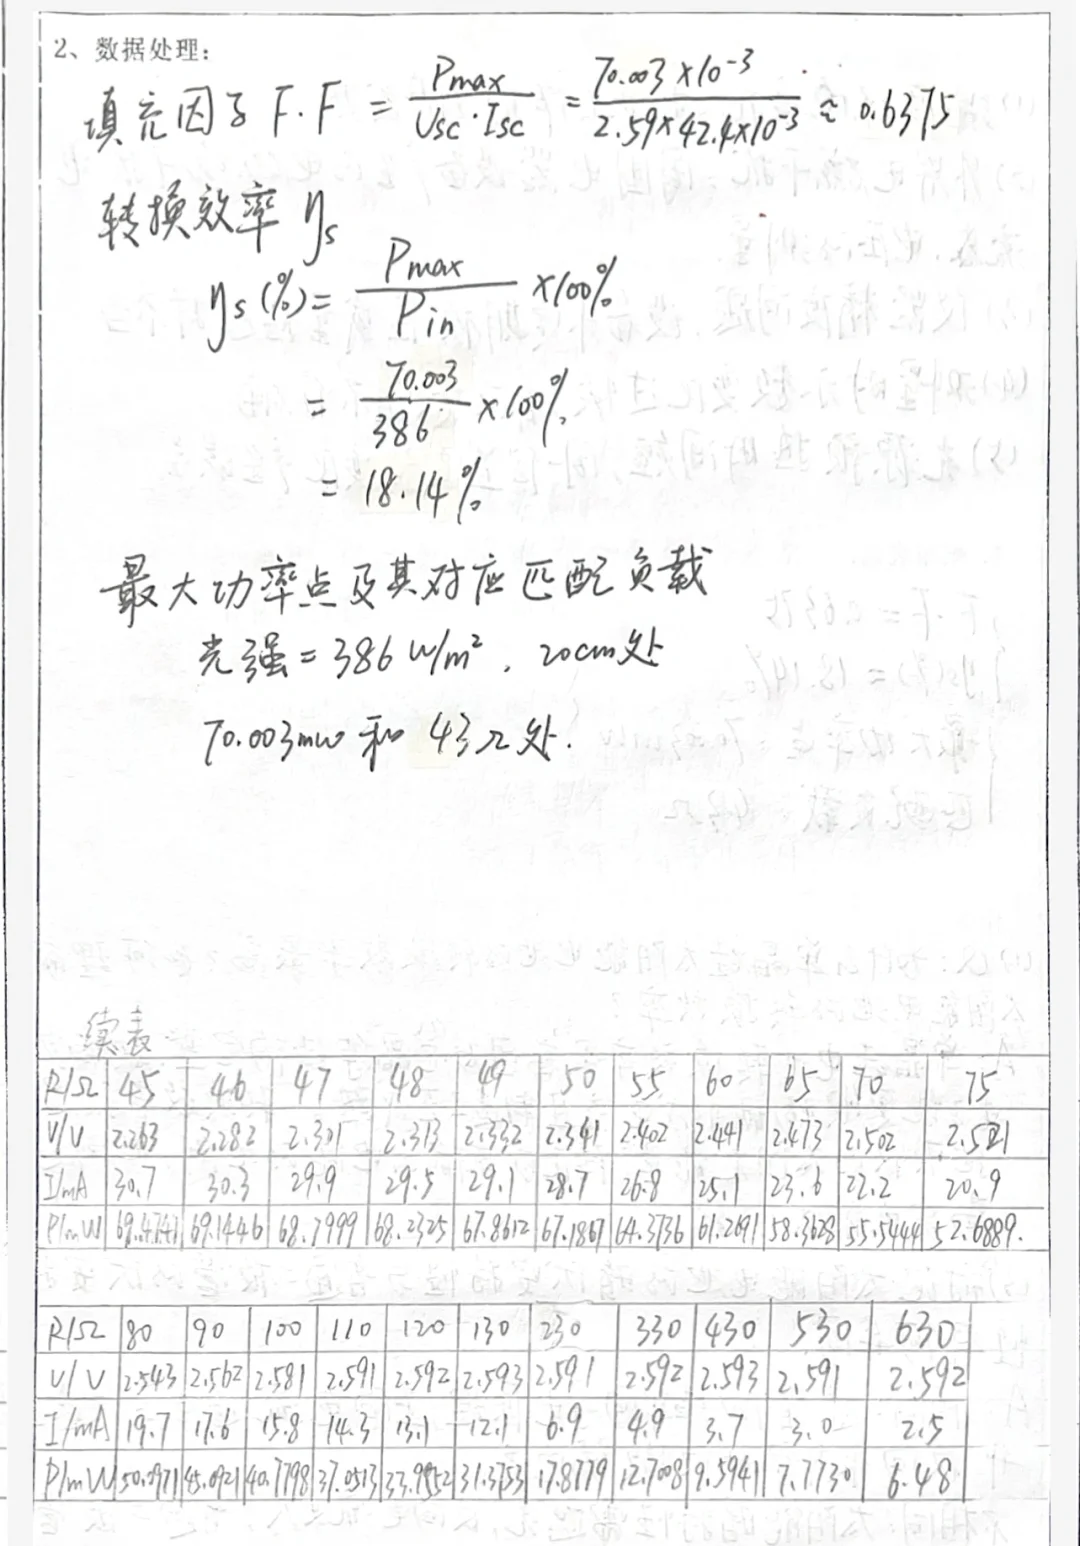 2、数据处理:
填充因子 F.F = Pmax / Usc·Isc = 70.003×10⁻³ / 2.59×42.4×10⁻³ ≈ 0.6375
转换效率 ηs
ηs(%)= Pmax / Pin ×100%
= 70.003 / 386 ×100%
= 18.14%
最大功率点及其对应匹配负载
光强=386 W/m², 20cm处
70.003mw 和 43Ω处.
续表
R/Ω 45 46 47 48 49 50 55 60 65 70 75
V/V 2.263 2.282 2.301 2.313 2.332 2.341 2.402 2.441 2.473 2.502 2.521
I/mA 30.7 30.3 29.9 29.5 29.1 28.7 26.8 25.1 23.6 22.2 20.9
P/mW 69.4741 69.1446 68.7999 68.2325 67.8612 67.1867 64.3736 61.2691 58.3628 55.5444 52.6889.
R/Ω 80 90 100 110 120 130 230 330 430 530 630
U/V 2.543 2.562 2.581 2.591 2.592 2.593 2.591 2.592 2.593 2.591 2.592
I/mA 19.7 17.6 15.8 14.3 13.1 12.1 6.9 4.9 3.7 3.0 2.5
P/mW 50.0971 45.0921 40.7798 37.0513 33.9552 31.3753 17.8779 12.7008 9.5941 7.7730 6.48